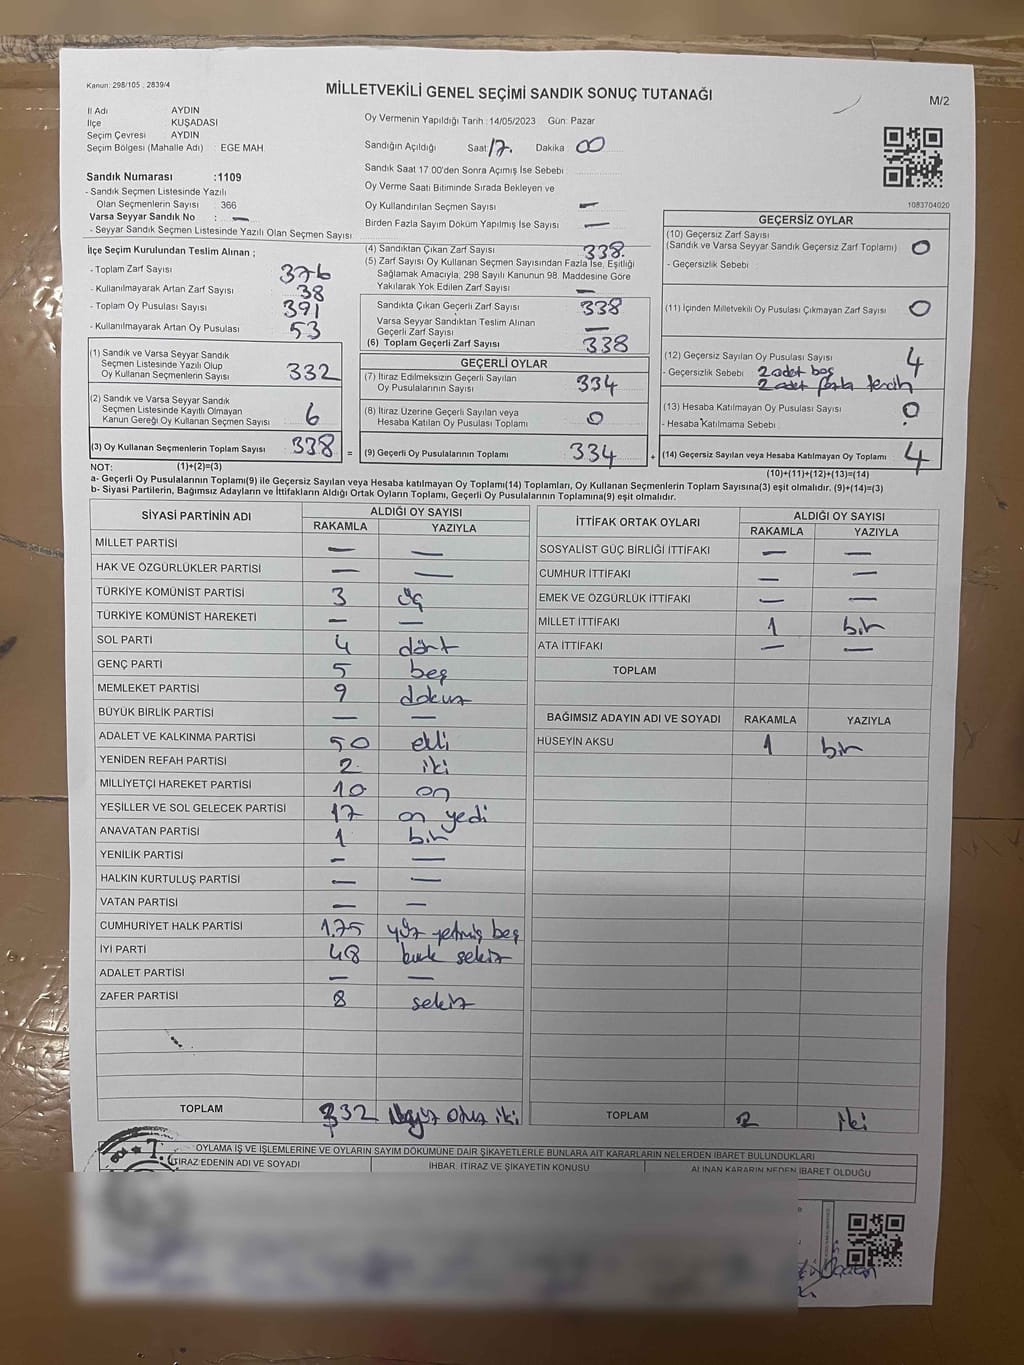 Kanun: 298/105 , 2839/4
MİLLETVEKİLİ GENEL SEÇİMİ SANDIK SONUÇ TUTANAĞI
M/2
İl Adı AYDIN
İlçe KUŞADASI
Seçim Çevresi AYDIN
Seçim Bölgesi (Mahalle Adı) : EGE MAH
Sandık Numarası :1109
- Sandık Seçmen Listesinde Yazılı
Olan Seçmenlerin Sayısı : 366
Varsa Seyyar Sandık No : —
- Seyyar Sandık Seçmen Listesinde Yazılı Olan Seçmen Sayısı
Oy Vermenin Yapıldığı Tarih :14/05/2023 Gün: Pazar
Sandığın Açıldığı Saat 17. Dakika 00
Sandık Saat 17.00'den Sonra Açılmış İse Sebebi
Oy Verme Saati Bitiminde Sırada Bekleyen ve
Oy Kullandırılan Seçmen Sayısı —
Birden Fazla Sayım Döküm Yapılmış İse Sayısı —
1083704020
İlçe Seçim Kurulundan Teslim Alınan ;
- Toplam Zarf Sayısı 376
- Kullanılmayarak Artan Zarf Sayısı 38
- Toplam Oy Pusulası Sayısı 391
- Kullanılmayarak Artan Oy Pusulası 53
(1) Sandık ve Varsa Seyyar Sandık
Seçmen Listesinde Yazılı Olup
Oy Kullanan Seçmenlerin Sayısı 332
(2) Sandık ve Varsa Seyyar Sandık
Seçmen Listesinde Kayıtlı Olmayan
Kanun Gereği Oy Kullanan Seçmen Sayısı 6
(3) Oy Kullanan Seçmenlerin Toplam Sayısı 338 =
(4) Sandıktan Çıkan Zarf Sayısı 338.
(5) Zarf Sayısı Oy Kullanan Seçmen Sayısından Fazla İse, Eşitliği
Sağlamak Amacıyla, 298 Sayılı Kanunun 98. Maddesine Göre
Yakılarak Yok Edilen Zarf Sayısı —
Sandıkta Çıkan Geçerli Zarf Sayısı 338
Varsa Seyyar Sandıktan Teslim Alınan
Geçerli Zarf Sayısı —
(6) Toplam Geçerli Zarf Sayısı 338
GEÇERLİ OYLAR
(7) İtiraz Edilmeksizin Geçerli Sayılan
Oy Pusulalarının Sayısı 334
(8) İtiraz Üzerine Geçerli Sayılan veya
Hesaba Katılan Oy Pusulası Toplamı 0
(9) Geçerli Oy Pusulalarının Toplamı 334 +
GEÇERSİZ OYLAR
(10) Geçersiz Zarf Sayısı
(Sandık ve Varsa Seyyar Sandık Geçersiz Zarf Toplamı) 0
- Geçersizlik Sebebi
(11) İçinden Milletvekili Oy Pusulası Çıkmayan Zarf Sayısı 0
(12) Geçersiz Sayılan Oy Pusulası Sayısı 4
- Geçersizlik Sebebi 2 adet boş
2 adet fazla tercih
(13) Hesaba Katılmayan Oy Pusulası Sayısı 0
- Hesaba Katılmama Sebebi
(14) Geçersiz Sayılan veya Hesaba Katılmayan Oy Toplamı 4
NOT: (1)+(2)=(3)
(10)+(11)+(12)+(13)=(14)
a- Geçerli Oy Pusulalarının Toplamı(9) ile Geçersiz Sayılan veya Hesaba Katılmayan Oy Toplamı(14) Toplamları, Oy Kullanan Seçmenlerin Toplam Sayısına(3) eşit olmalıdır. (9)+(14)=(3)
b- Siyasi Partilerin, Bağımsız Adayların ve İttifakların Aldığı Ortak Oyların Toplamı, Geçerli Oy Pusulalarının Toplamına(9) eşit olmalıdır.
SİYASİ PARTİNİN ADI ALDIĞI OY SAYISI
RAKAMLA YAZIYLA
MİLLET PARTİSİ — —
HAK VE ÖZGÜRLÜKLER PARTİSİ — —
TÜRKİYE KOMÜNİST PARTİSİ 3 üç
TÜRKİYE KOMÜNİST HAREKETİ — —
SOL PARTİ 4 dört
GENÇ PARTİ 5 beş
MEMLEKET PARTİSİ 9 dokuz
BÜYÜK BİRLİK PARTİSİ — —
ADALET VE KALKINMA PARTİSİ 50 elli
YENİDEN REFAH PARTİSİ 2 iki
MİLLİYETÇİ HAREKET PARTİSİ 10 on
YEŞİLLER VE SOL GELECEK PARTİSİ 17 on yedi
ANAVATAN PARTİSİ 1 bir
YENİLİK PARTİSİ — —
HALKIN KURTULUŞ PARTİSİ — —
VATAN PARTİSİ — —
CUMHURİYET HALK PARTİSİ 175 yüz yetmiş beş
İYİ PARTİ 48 kırk sekiz
ADALET PARTİSİ — —
ZAFER PARTİSİ 8 sekiz
TOPLAM 332 üçyüz otuz iki
İTTİFAK ORTAK OYLARI ALDIĞI OY SAYISI
RAKAMLA YAZIYLA
SOSYALİST GÜÇ BİRLİĞİ İTTİFAKI — —
CUMHUR İTTİFAKI — —
EMEK VE ÖZGÜRLÜK İTTİFAKI — —
MİLLET İTTİFAKI 1 bir
ATA İTTİFAKI — —
TOPLAM
BAĞIMSIZ ADAYIN ADI VE SOYADI RAKAMLA YAZIYLA
HÜSEYİN AKSU 1 bir
TOPLAM 2 iki
OYLAMA İŞ VE İŞLEMLERİNE VE OYLARIN SAYIM DÖKÜMÜNE DAİR ŞİKAYETLERLE BUNLARA AİT KARARLARIN NELERDEN İBARET BULUNDUKLARI
İTİRAZ EDENİN ADI VE SOYADI İHBAR, İTİRAZ VE ŞİKAYETİN KONUSU ALINAN KARARIN NEDEN İBARET OLDUĞU